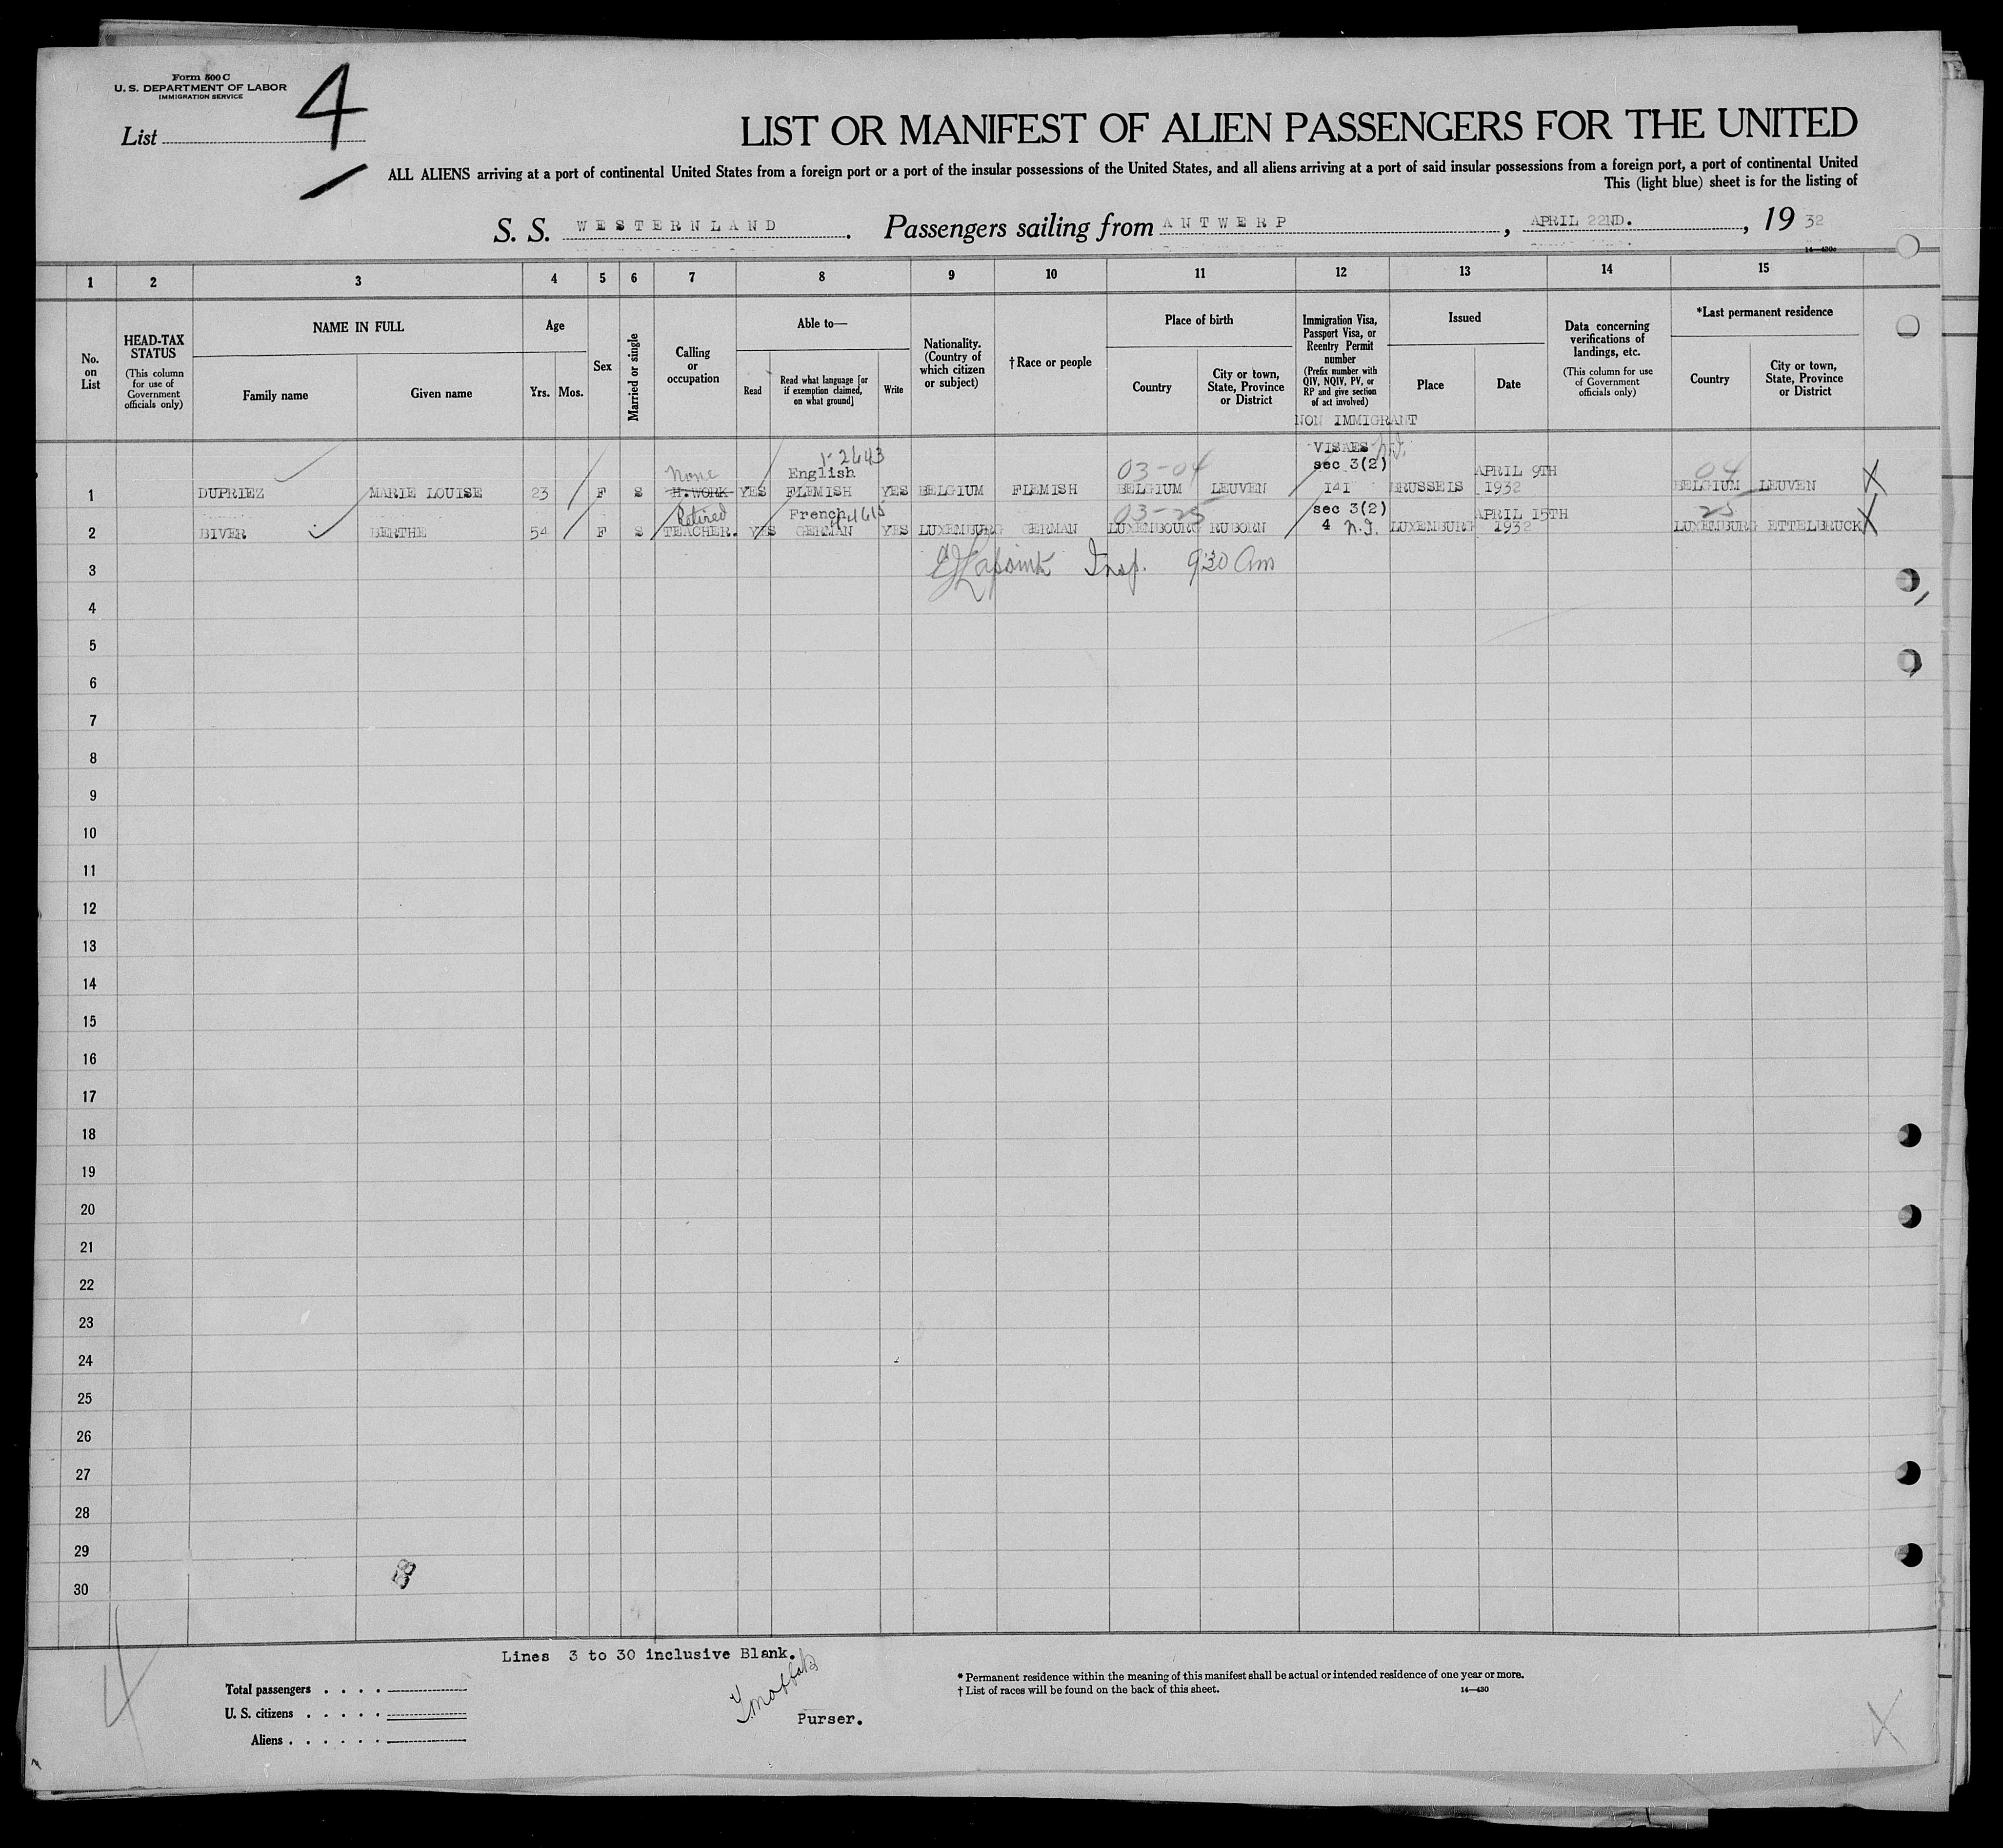 Form 500 C
U. S. DEPARTMENT OF LABOR
IMMIGRATION SERVICE
List 4
LIST OR MANIFEST OF ALIEN PASSENGERS FOR THE UNITED
ALL ALIENS arriving at a port of continental United States from a foreign port or a port of the insular possessions of the United States, and all aliens arriving at a port of said insular possessions from a foreign port, a port of continental United
This (light blue) sheet is for the listing of
S. S. WESTERNLAND. Passengers sailing from ANTWERP, APRIL 22ND., 19 32
14—430c
1 2 3 4 5 6 7 8 9 10 11 12 13 14 15
No. on List
HEAD-TAX STATUS (This column for use of Government officials only)
NAME IN FULL
Family name Given name
Age
Yrs. Mos.
Sex
Married or single
Calling or occupation
Able to—
Read
Read what language [or if exemption claimed, on what ground]
Write
Nationality. (Country of which citizen or subject)
† Race or people
Place of birth
Country
City or town, State, Province or District
Immigration Visa, Passport Visa, or Reentry Permit number (Prefix number with QIV, NQIV, PV, or RP and give section of act involved)
Issued
Place Date
Data concerning verifications of landings, etc. (This column for use of Government officials only)
*Last permanent residence
Country
City or town, State, Province or District
NON IMMIGRANT
VISAES
1-2643
None English 03-04 sec 3(2) APRIL 9TH 04
1 DUPRIEZ MARIE LOUISE 23 F S H.WORK YES FLEMISH YES BELGIUM FLEMISH BELGIUM LEUVEN 141 BRUSSELS 1932 BELGIUM LEUVEN X
Retired French 03-25 sec 3(2) APRIL 15TH 25
2 BIVER BERTHE 54 F S TEACHER. YES GERMAN YES LUXEMBURG GERMAN LUXEMBOURG RUBORN 4 N.I. LUXEMBURG 1932 LUXEMBURG ETTELBRUCK X
3 Lapoint Insp. 9:30 Am
4
5
6
7
8
9
10
11
12
13
14
15
16
17
18
19
20
21
22
23
24
25
26
27
28
29
30
Lines 3 to 30 inclusive Blank.
Total passengers . . . .
U. S. citizens . . . . .
Aliens . . . . . .
Purser.
* Permanent residence within the meaning of this manifest shall be actual or intended residence of one year or more.
† List of races will be found on the back of this sheet.
14—430
4
X